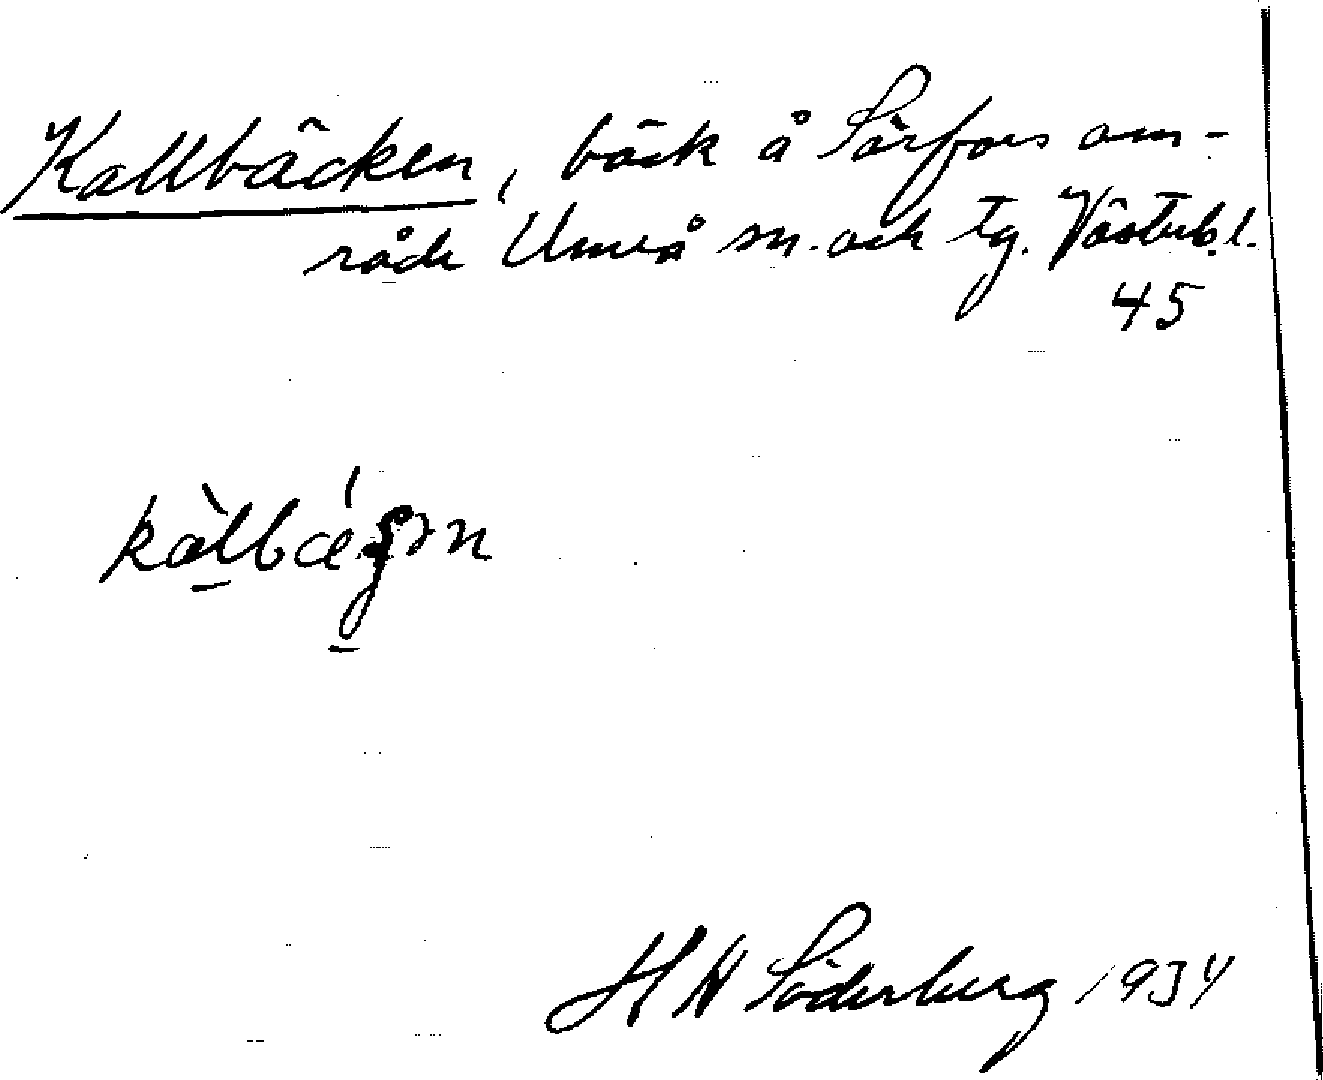 Kallbäcken, bäck å Sörfors om-
råde Umeå sn. och tg. Västerb.l.
45
H N Söderberg 1934